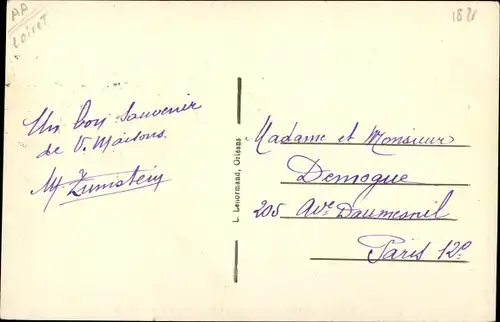 AA
Loiret
18 %
Un bon souvenir
de V. Maisons.
M Zumstein
L. Lenormand, Orléans
Madame et Monsieur
Demogue
205 Ave Daumesnil
Paris 12e